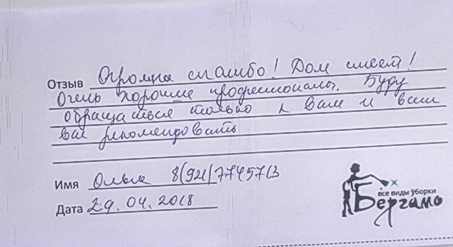 Отзыв Огромна спасибо! Дом сияет!
Очень хорошие профессионалы. Буду
обращаться только к Вам и всем
вас рекомендовать
Имя Ольга 8(921)7745713
Дата 29.04.2018
все виды уборки
Бергамо